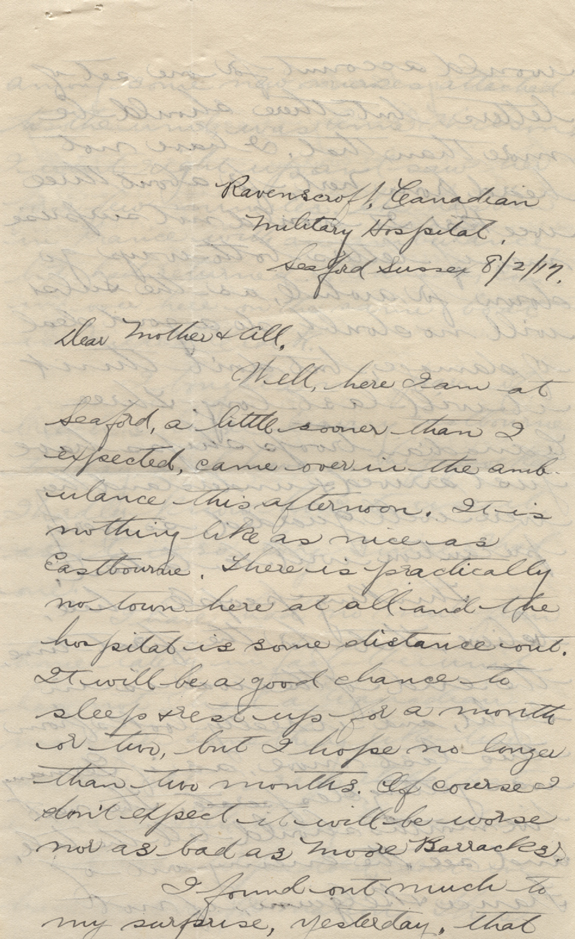 Ravenscroft, Canadian
Military Hospital,
Seaford Sussex 8/2/17.
Dear Mother & All,
Well, here I am at
Seaford, a little sooner than I
expected, came over in the amb-
ulance this afternoon. It is
nothing like as nice as
Eastbourne. There is practically
no town here at all and the
hospital is some distance out.
It will be a good chance to
sleep & rest up for a month
or two, but I hope no longer
than two months. Of course I
don't expect it will be worse
nor as bad as Moore Barracks.
I found out much to
my surprise, yesterday, that